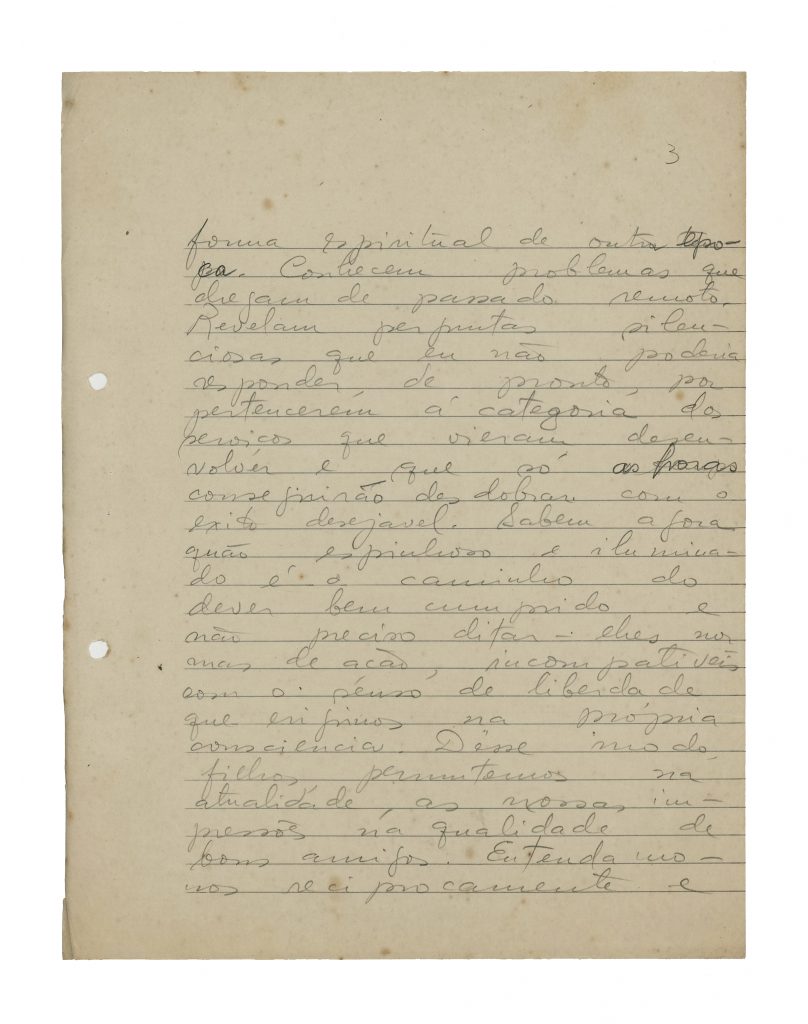 3
forma espiritual de outra épo-
ca. Conhecem problemas que
chegam de passado remoto.
Revelam perguntas silen-
ciosas que eu não poderia
responder, de pronto, por
pertencerem á categoria dos
serviços que vieram desen-
volver e que só as horas
conseguirão desdobrar com o
exito desejavel. Sabem agora
quão espinhoso e ilumina-
do é o caminho do
dever bem cumprido e
não preciso ditar-lhes nor
mas de ação, incompativeis
com o senso de liberdade
que erigimos na própria
consciencia. Dêsse modo,
filhos, permutemos na
atualidade, as nossas im-
pressões na qualidade de
bons amigos. Entendamo-
nos reciprocamente e